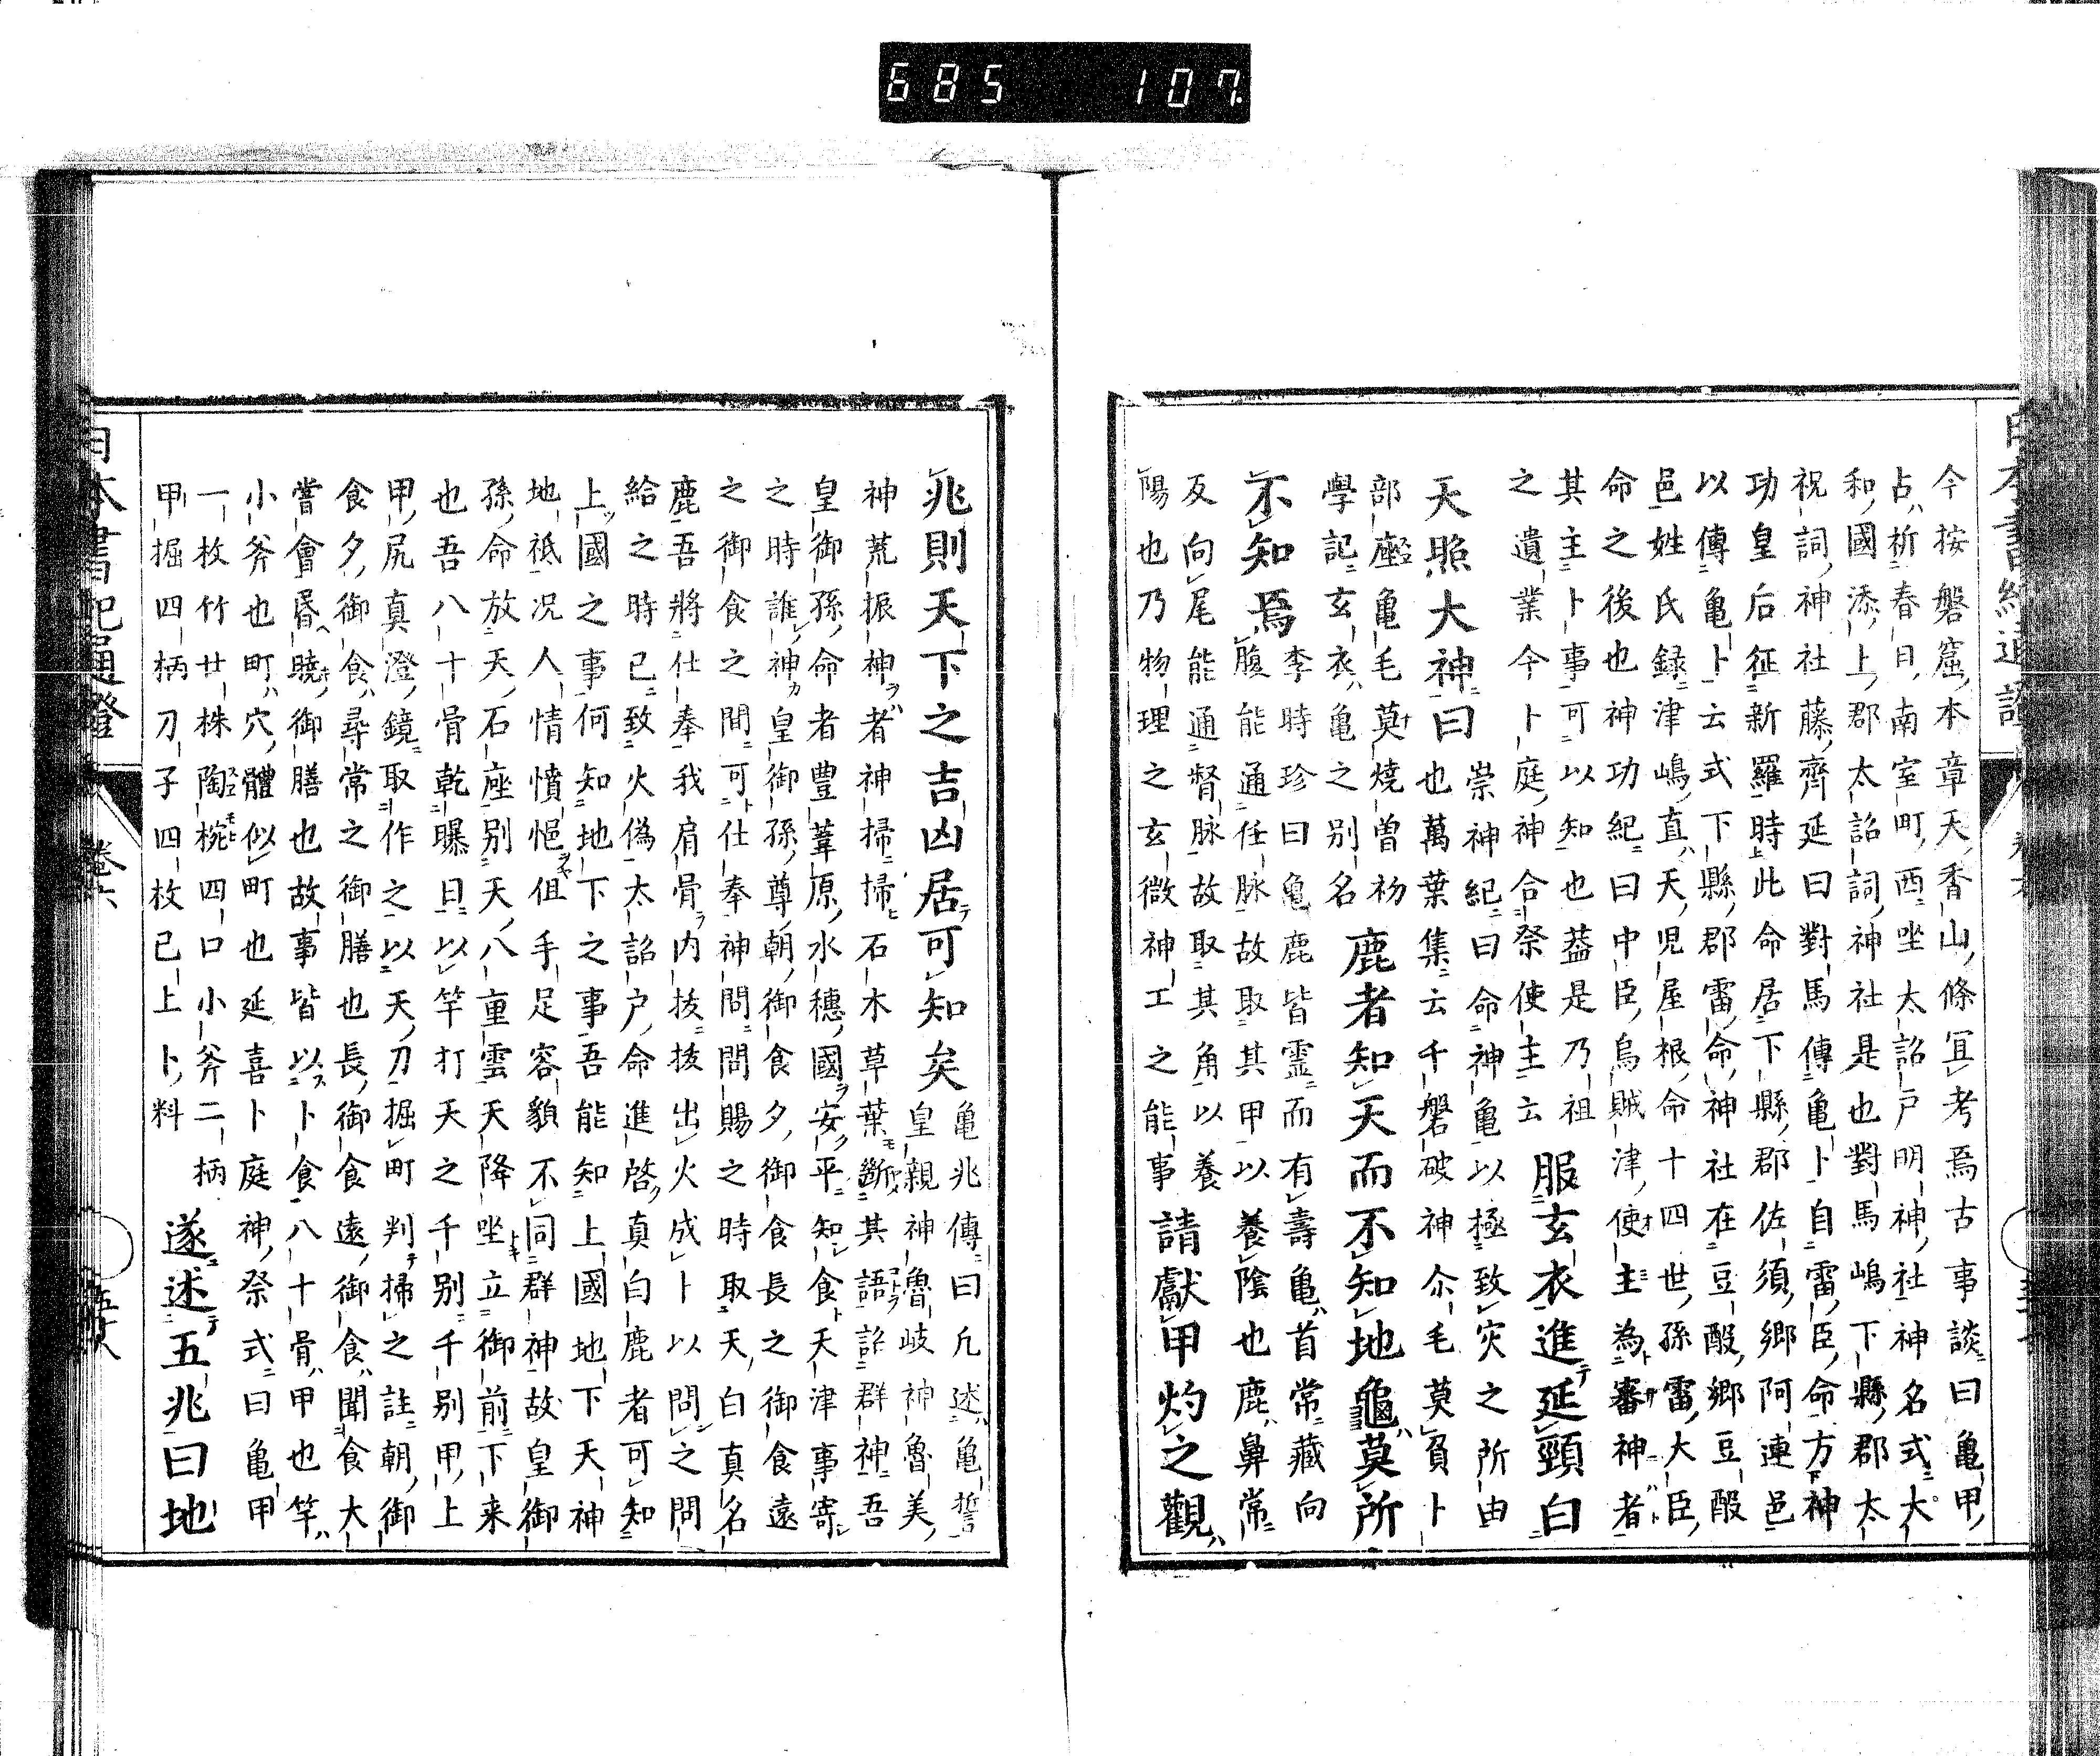 685 107
今按磐窟本章天香山條宜考焉古事談曰亀甲
占祈春日南室町西坐太詔戸明神社神名式大
和國添上郡太詔詞神社是也對馬嶋下縣郡太
祝詞神社藤齊延曰對馬傳亀卜自雷臣命方神
功皇后征新羅時此命居下縣郡佐須郷阿連邑
以傳亀卜云式下縣郡雷命神社在豆酘郷豆酘
邑姓氏録津嶋直天児屋根命十四世孫雷大臣
命之後也神功紀曰中臣烏賊津使主為審神者
其主卜事可以知也葢是乃祖
之遺業今卜庭神合祭使主云
服玄衣進延頸白
天照大神曰
崇神紀曰命神亀以極致灾之所由
也萬葉集云千磐破神尒毛莫負卜
部座亀毛莫焼曽初
學記玄衣亀之別名
鹿者知天而不知地龜莫所
不知焉
李時珍曰亀鹿皆霊而有壽亀首常藏向
腹能通任脉故取其甲以養陰也鹿鼻常
反向尾能通督脉故取其角以養
陽也乃物理之玄微神工之能事
請獻甲灼之觀
兆則天下之吉凶居可知矣
亀兆傳曰凢述亀誓
皇親神魯岐神魯美
神荒振神者神掃掃石木草葉斷其語詔群神吾
皇御孫命者豊葦原水穗國安平知食天津事寄
之時誰神皇御孫尊朝御食夕御食長之御食遠
之御食之間可仕奉神問問賜之時取天白真名
鹿吾將仕奉我肩骨内抜抜出火成卜以問之問
給之時已致火偽太詔戸命進啓真白鹿者可知
上國之事何知地下之事吾能知上國地下天神
地祇况人情憤悒但手足容貌不同群神故皇御
孫命放天石座別天八重雲天降坐立御前下来
也吾八十骨乾曝日以竿打天之千別千別甲上
甲尻真澄鏡取作之以天刀掘町判掃之註朝御
食夕御食尋常之御膳也長御食遠御食聞食大
嘗會昏曉御膳也故事皆以卜食八十骨甲也竿
小斧也町穴體似町也延喜卜庭神祭式曰亀甲
一枚竹廿株陶椀四口小斧二柄
甲掘四柄刀子四枚已上卜料
遂述五兆曰地
日本書紀通證 卷六